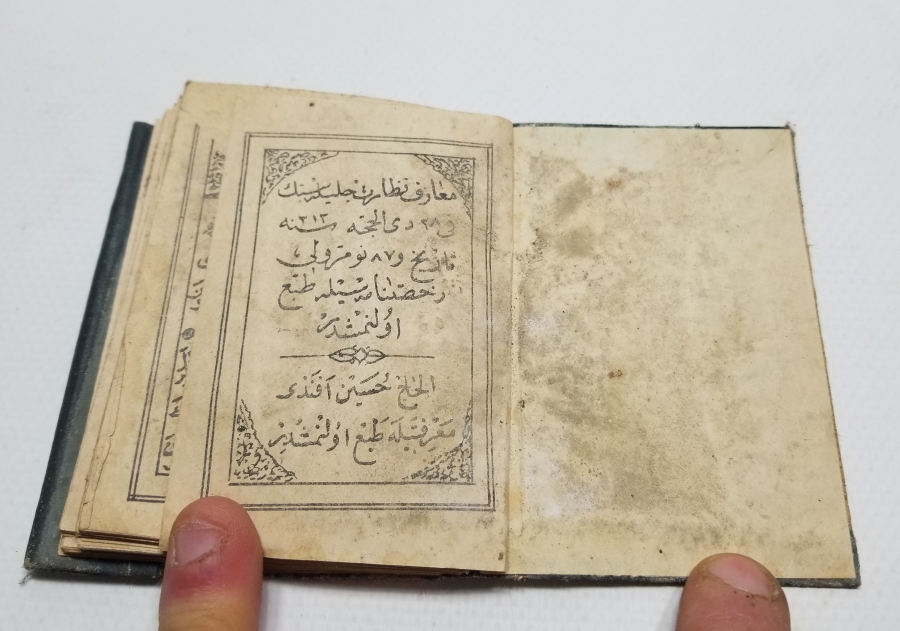 معارف نظارت جليله‌سنك
فى ٢٨ ذى الحجه سنه ٣١٣
تاريخ و ٨٧ نومرولى
رخصتنامه‌سيله طبع
اولنمشدر
الحاج حسين افندى
معرفتيله طبع اولنمشدر